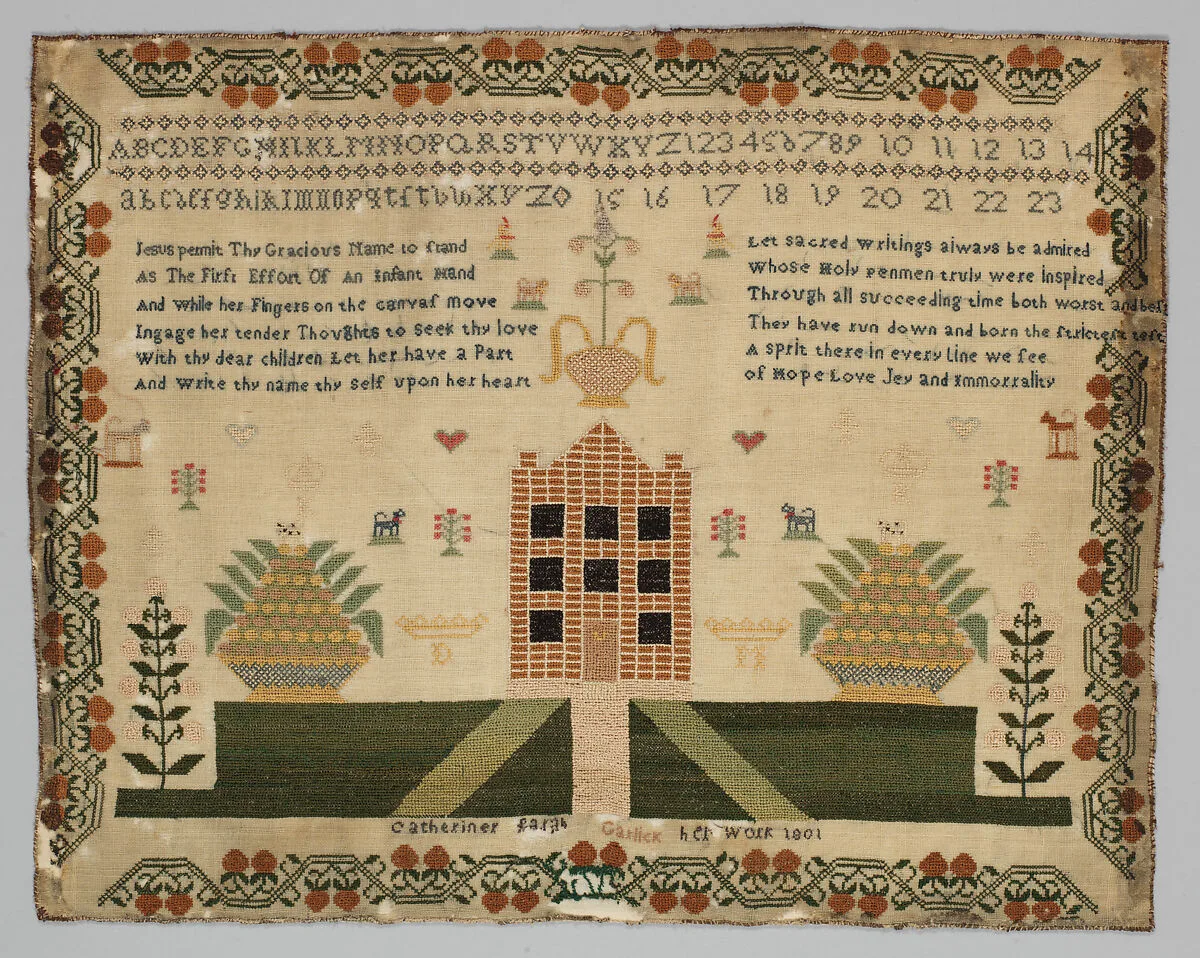 ABCDEFGHIJKLMNOPQRSTVWXYZ123456789 10 11 12 13 14
abcdefghiklmnopqrſtvwxyz& 15 16 17 18 19 20 21 22 23
Jesus permit Thy Gracious Name to ſtand
As The Firſt Effort Of An Infant Hand
And while her Fingers on the canvaſ move
Ingage her tender Thoughts to seek thy love
With thy dear children Let her have a Part
And Write thy name thy self upon her heart
Let sacred writings always be admired
Whose Holy Penmen truly were inspired
Through all succeeding time both worst and beſt
They have run down and born the ſtrictest teſt
A sprit there in every line we ſee
of Hope Love Joy and Immorrality
D H
Catheriner ſarah Garlick her Work 1801